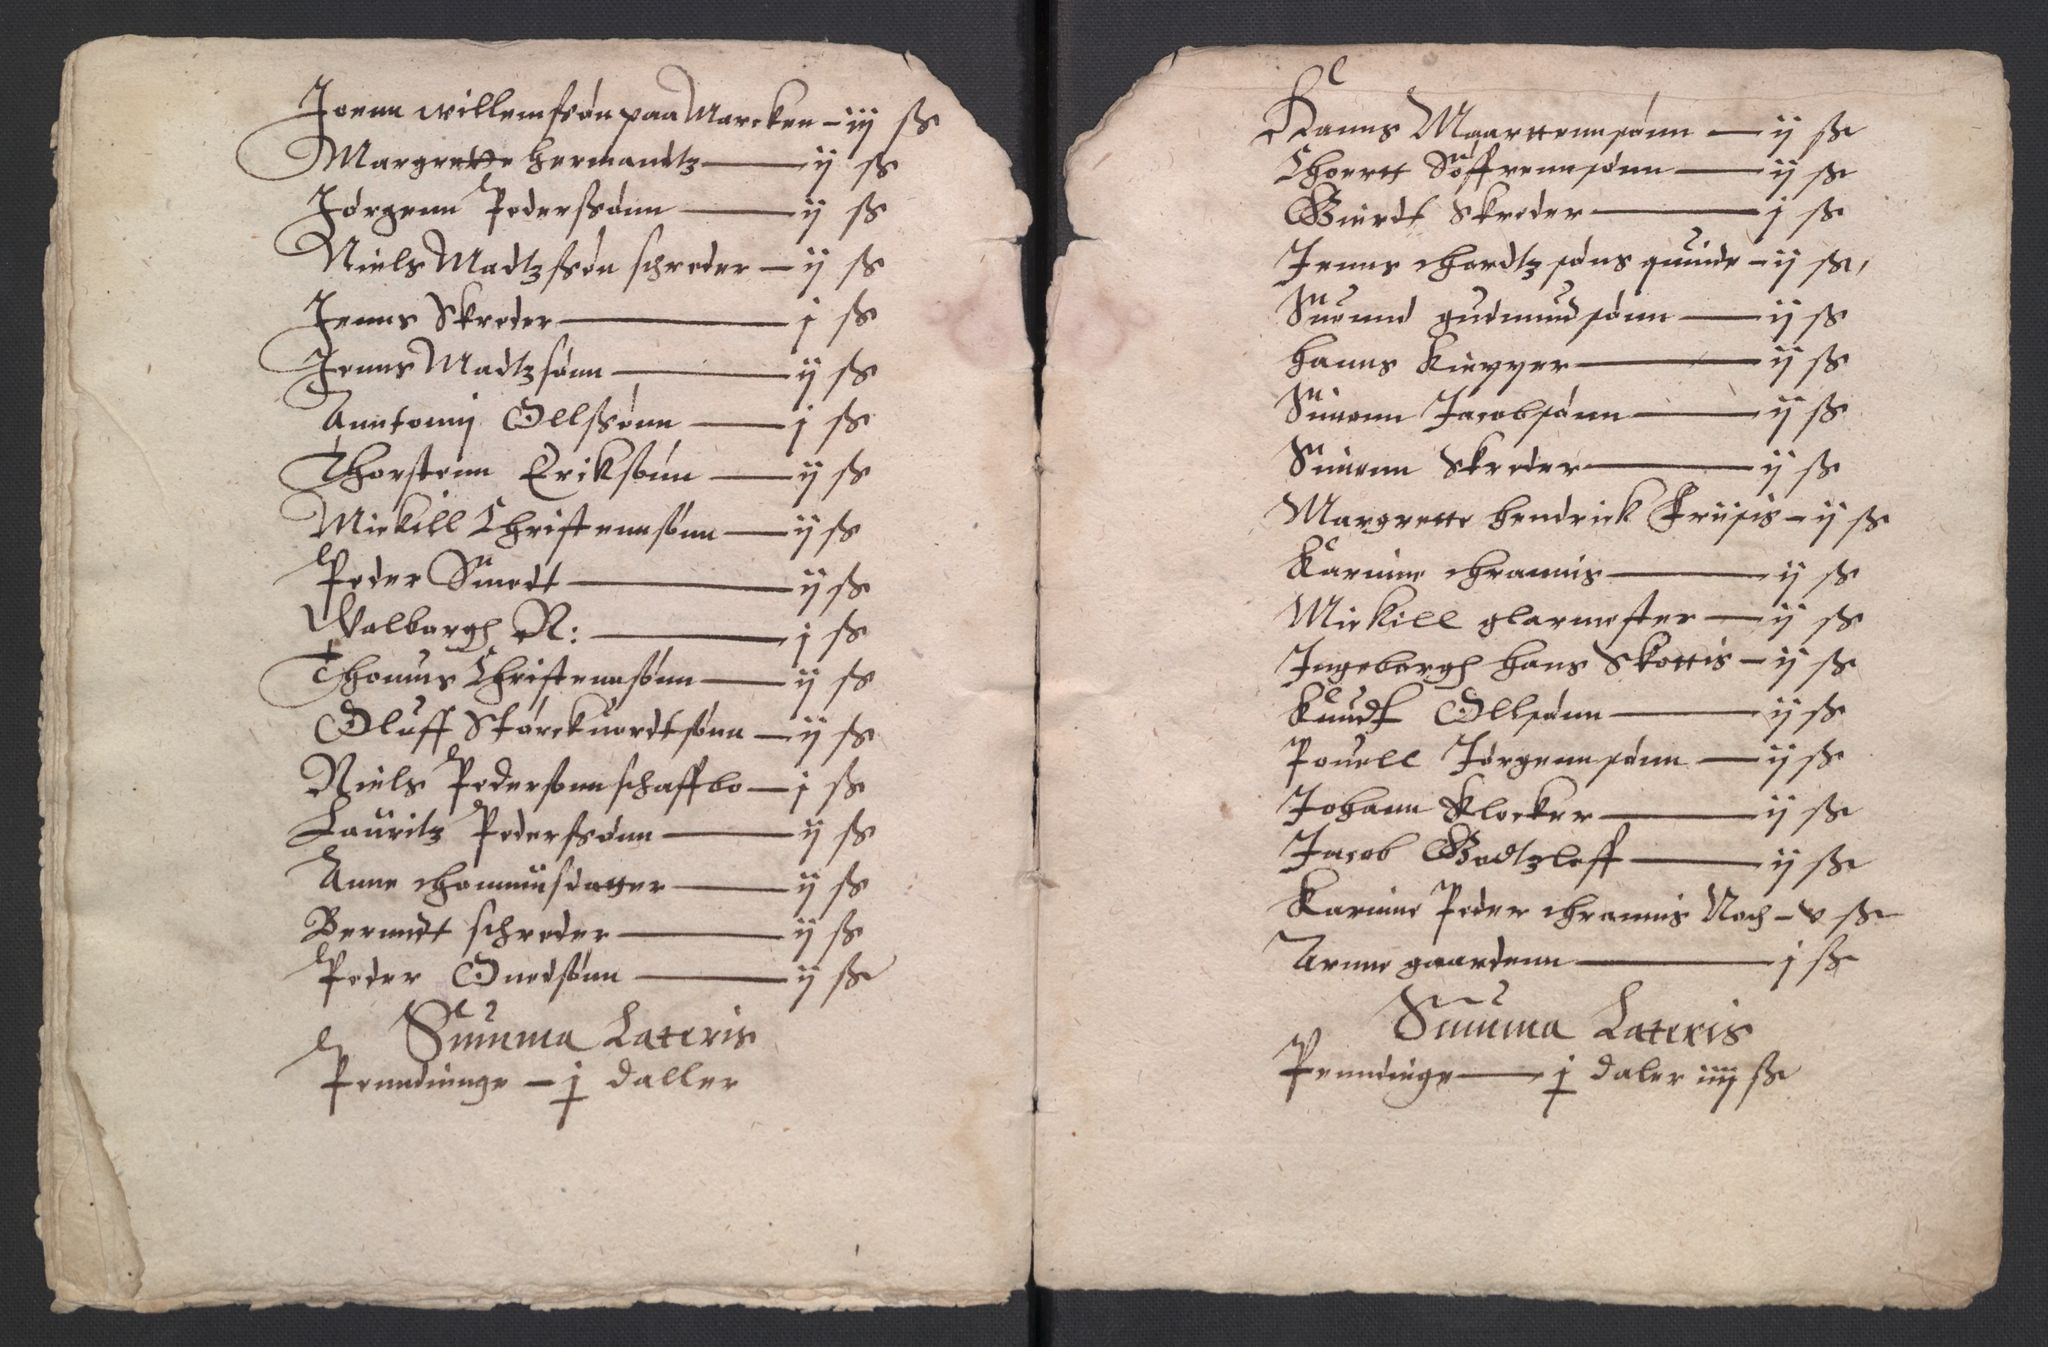 Joenn willemsøn paa Marcken – iij ß
Margrette hermandtz – ij ß
Jørgenn Pederssønn – ij ß
Niels Madtzsøn schreder – ij ß
Jenns Skreder – j ß
Jenns Madtzsønn – ij ß
Anntonij Ollssønn – j ß
Thorstenn Erikssønn – ij ß
Mickill Christennssønn – ij ß
Peder Smedt – ij ß
Walborgh R: – j ß
Thomas Christennssønn – ij ß
Oluff Størckuordtsønn – ij ß
Niels Pederssønn schaffbo – j ß
Lauritz Pederssønn – ij ß
Anne thommisdatter – ij ß
Berendt schreder – ij ß
Peder Onedssønn – ij ß
Summa Lateris
Penndinnge – j daller
Hanns Maarttennsønn – ij ß
Thoertt Söffrennsønn – ij ß
Gierdt Skreder – j ß
Jenns thordtzsøns quinde – ij ß
Suennd gudmundsønn – ij ß
hanns Kieyyer – ij ß
Simenn Jacobsønn – ij ß
Simenn Skreder – ij ß
Margrette hendrick Friisis – ij ß
Karinne thrannis – ij ß
Mickill glarmester – ij ß
Ingeborgh hans Skottis – ij ß
Knudt Ollsønn – ij ß
Pouell Jørgennsønn – ij ß
Johann Klocker – ij ß
Jacob Godtzloff – ij ß
Karinne Peder thrannis Noch – v ß
Arnne gaardenn – j ß
Summa Lateris
Penndinge – j daler iiij ß